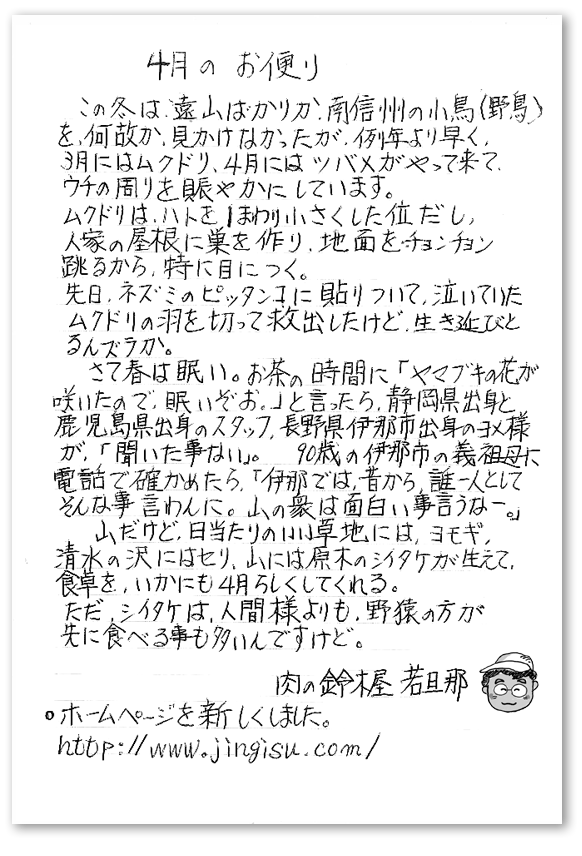 4月の お便り
この冬は、遠山ばかりか、南信州の小鳥(野鳥)
を、何故か、見かけなかったが、例年より早く、
3月にはムクドリ、4月にはツバメがやって来て、
ウチの周りを賑やかにしています。
ムクドリは、ハトを1まわり小さくした位だし、
人家の屋根に巣を作り、地面をチョンチョン
跳るから、特に目につく。
先日、ネズミのピッタンコに貼りついて、泣いていた
ムクドリの羽を切って救出したけど、生き延びと
るんズラか。
さて春は眠い。お茶の時間に「ヤマブキの花が
咲いたので、眠いぞお。」と言ったら、静岡県出身と
鹿児島県出身のスタッフ、長野県伊那市出身のヨメ様
が、「聞いた事ない」。 90歳の伊那市の義祖母に
電話で確かめたら、「伊那では、昔から、誰一人として
そんな事言わんに。山の衆は面白い事言うなー。」
山だけど、日当たりのいい草地には、ヨモギ、
清水の沢にはセリ、山には原木のシイタケが生えて、
食草を、いかにも4月らしくしてくれる。
ただ、シイタケは、人間様よりも、野猿の方が
先に食べる事も多いんですけど。
肉の鈴木屋 若旦那
○ホームページを新しくしました。
http://www.jingisu.com/